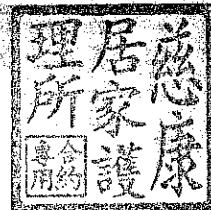 慈康
居家護
理所
合約
專用